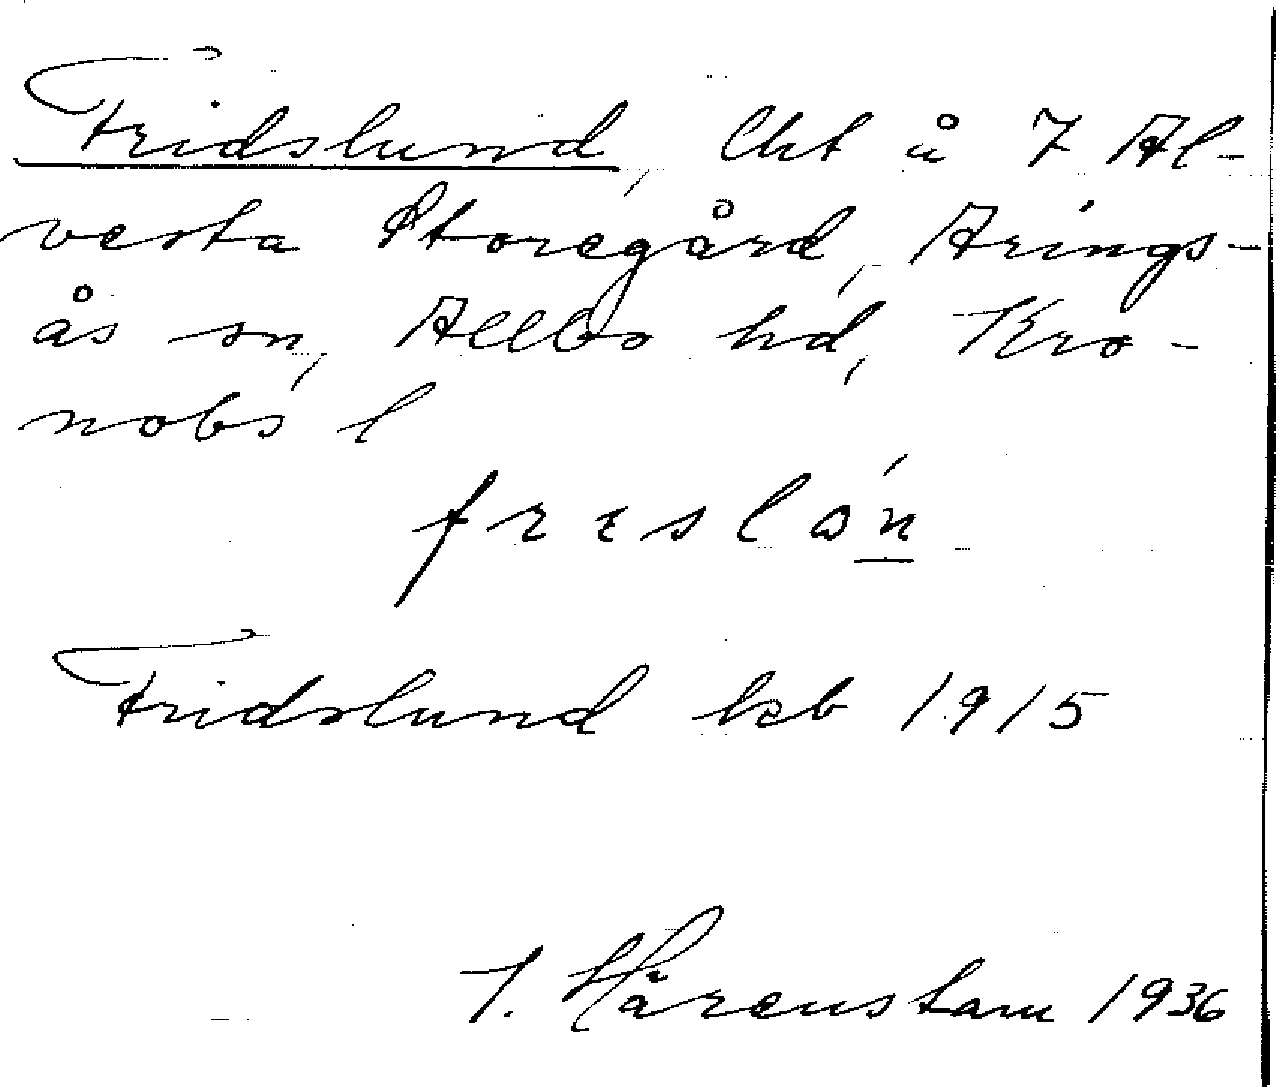 Fridslund, lht å 7 Al-
vesta Storegård, Arings-
ås sn, Allbo hd, Kro-
nobs l
Fridslund kb 1915
J. Hårenstam 1936